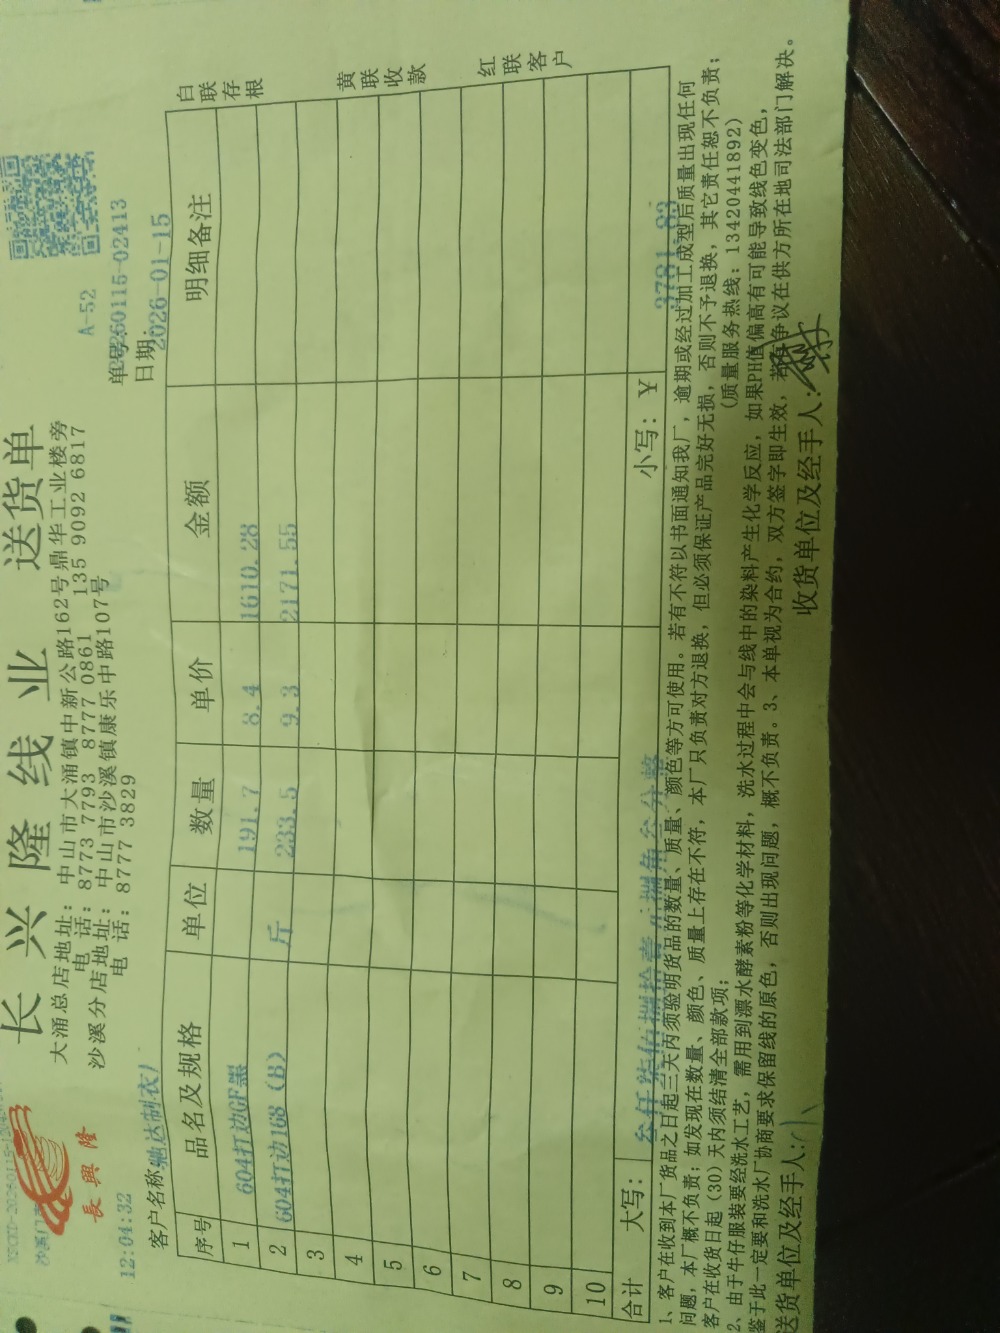 長興隆
长兴隆线业 送货单
大涌总店地址：中山市大涌镇中新公路162号鼎华工业楼旁
电 话：8773 7793 8777 0861 135 9092 6817
沙溪分店地址：中山市沙溪镇康乐中路107号
电 话：8777 3829
A-52
12:04:32
单号:
60115-02413
客户名称 驰达制衣)
日期: 2026-01-15
序号 品名及规格 单位 数量 单价 金额 明细备注
1 604打边GF黑 191.7 8.4 1610.28
2 604打边168（B） 斤 233.5 9.3 2171.55
3
4
5
6
7
8
9
10
合计 大写： 叁仟柒佰捌拾壹元捌角叁分整 小写：￥ 3781.83
白联存根
黄联收款
红联客户
1、客户在收到本厂货品之日起三天内须验明货品的数量、质量、颜色等方可使用。若有不符以书面通知我厂，逾期或经过加工成型后质量出现任何
问题，本厂概不负责；如发现在数量、颜色、质量上存在不符，本厂只负责对方退换，但必须保证产品完好无损，否则不予退换，其它责任恕不负责；
客户在收货日起（30）天内须结清全部款项； （质量服务热线：13420441892）
2、由于牛仔服装要经洗水工艺，需用到漂水酵素粉等化学材料，洗水过程中会与线中的染料产生化学反应，如果PH值偏高有可能导致线色变色，
鉴于此一定要和洗水厂协商要求保留线的原色，否则出现问题，概不负责。3、本单视为合约，双方签字即生效，若有争议在供方所在地司法部门解决。
送货单位及经手人： 收货单位及经手人：